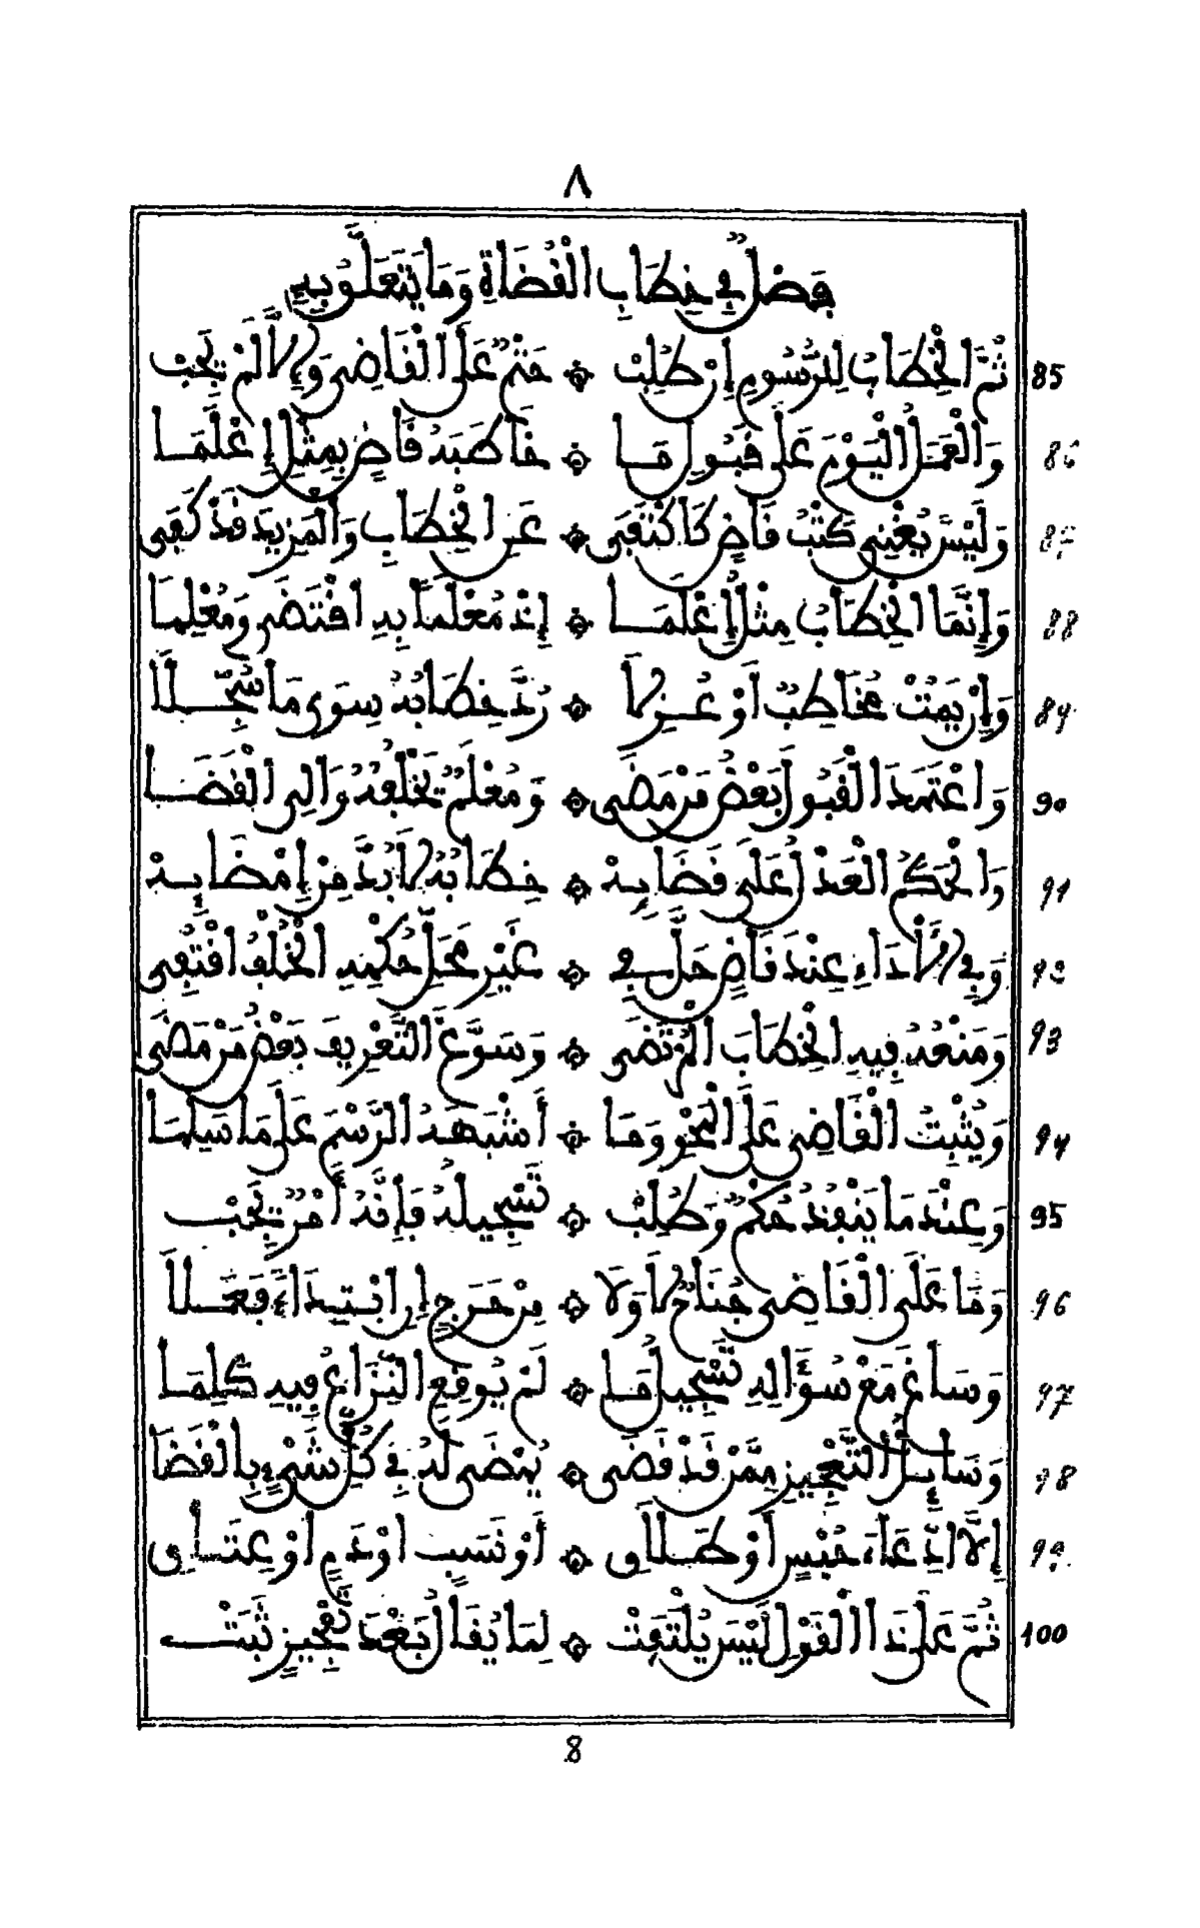 ٨
فَصْلٌ فِي خِطَابِ الْقُضَاةِ وَمَا يَتَعَلَّقُ بِهِ
ثُمَّ الْخِطَابُ لِلرُّسُومِ إِنْ طُلِبْ ۞ حَتْمٌ عَلَى الْقَاضِي وَإِلَّا لَمْ يَجِبْ 85
وَالْعَمَلُ الْيَوْمَ عَلَى قَبُولِ مَا ۞ خَاطَبَهُ قَاضٍ بِمِثْلِ إِعْلَمَا 86
وَلَيْسَ يُغْنِي كَتْبُ قَاضٍ كَاكْتَفَى ۞ عَنِ الْخِطَابِ وَالْمَزِيدِ قَدْ كَفَى 87
وَإِنَّمَا الْخِطَابُ مِثْلُ إِعْلَمَا ۞ إِذْ مُعْلَماً بِهِ اقْتَضَى وَمُعْلِمَا 88
وَإِنْ يَمُتْ مُخَاطِبٌ أَوْ عُزِلَا ۞ رُدَّ خِطَابُهُ سِوَى مَا سُجِّلَا 89
وَاعْتَمَدَ الْقَبُولَ بَعْضُ مَنْ مَضَى ۞ وَمُعْلَمٌ يَخْلُفُهُ وَالِي الْقَضَا 90
وَالْحَكَمُ الْعَدْلُ عَلَى قَضَائِهْ ۞ خِطَابُهُ لَا بُدَّ مِنْ إِمْضَائِهْ 91
وَفِي الْأَدَاءِ عِنْدَ قَاضٍ حَلَّ فِي ۞ غَيْرِ مَحَلِّ حُكْمِهِ الْخُلْفُ اقْتُفِي 92
وَمَنْعُهُ فِيهِ الْخِطَابَ الْمُرْتَضَى ۞ وَسَوَّغَ التَّعْرِيفَ بَعْضُ مَنْ مَضَى 93
وَيُثْبِتُ الْقَاضِي عَلَى الْمَحْوِ وَمَا ۞ أَشْبَهَهُ الرَّسْمَ عَلَى مَا سَلِمَا 94
وَعِنْدَ مَا يَنْفُذُ حُكْمٌ وَطُلِبْ ۞ تَسْجِيلُهُ فَإِنَّهُ أَمْرٌ يَجِبْ 95
وَمَا عَلَى الْقَاضِي جُنَاحٌ لَا وَلَا ۞ مِنْ حَرَجٍ إِنِ ابْتِدَاءً فَعَلَا 96
وَسَاغَ مَعْ سُؤَالِهِ تَسْجِيلُ مَا ۞ لَمْ يُوقِعِ النِّزَاعُ فِيهِ كَلِمَا 97
وَسَائِلُ التَّعْجِيزِ مِمَّنْ قَدْ قَضَى ۞ يُمْضَى لَهُ فِي كُلِّ شَيْءٍ بِالْقَضَا 98
إِلَّا ادِّعَاءَ حُبُسٍ أَوْ طَلَاقِ ۞ أَوْ نَسَبٍ أَوْ دَمٍ أَوْ عِتَاقِ 99
ثُمَّ عَلَى ذَا الْقَوْلِ لَيْسَ يُلْتَفَتْ ۞ لِمَا يُقَالُ بَعْدَ تَعْجِيزٍ ثَبَتْ 100
8